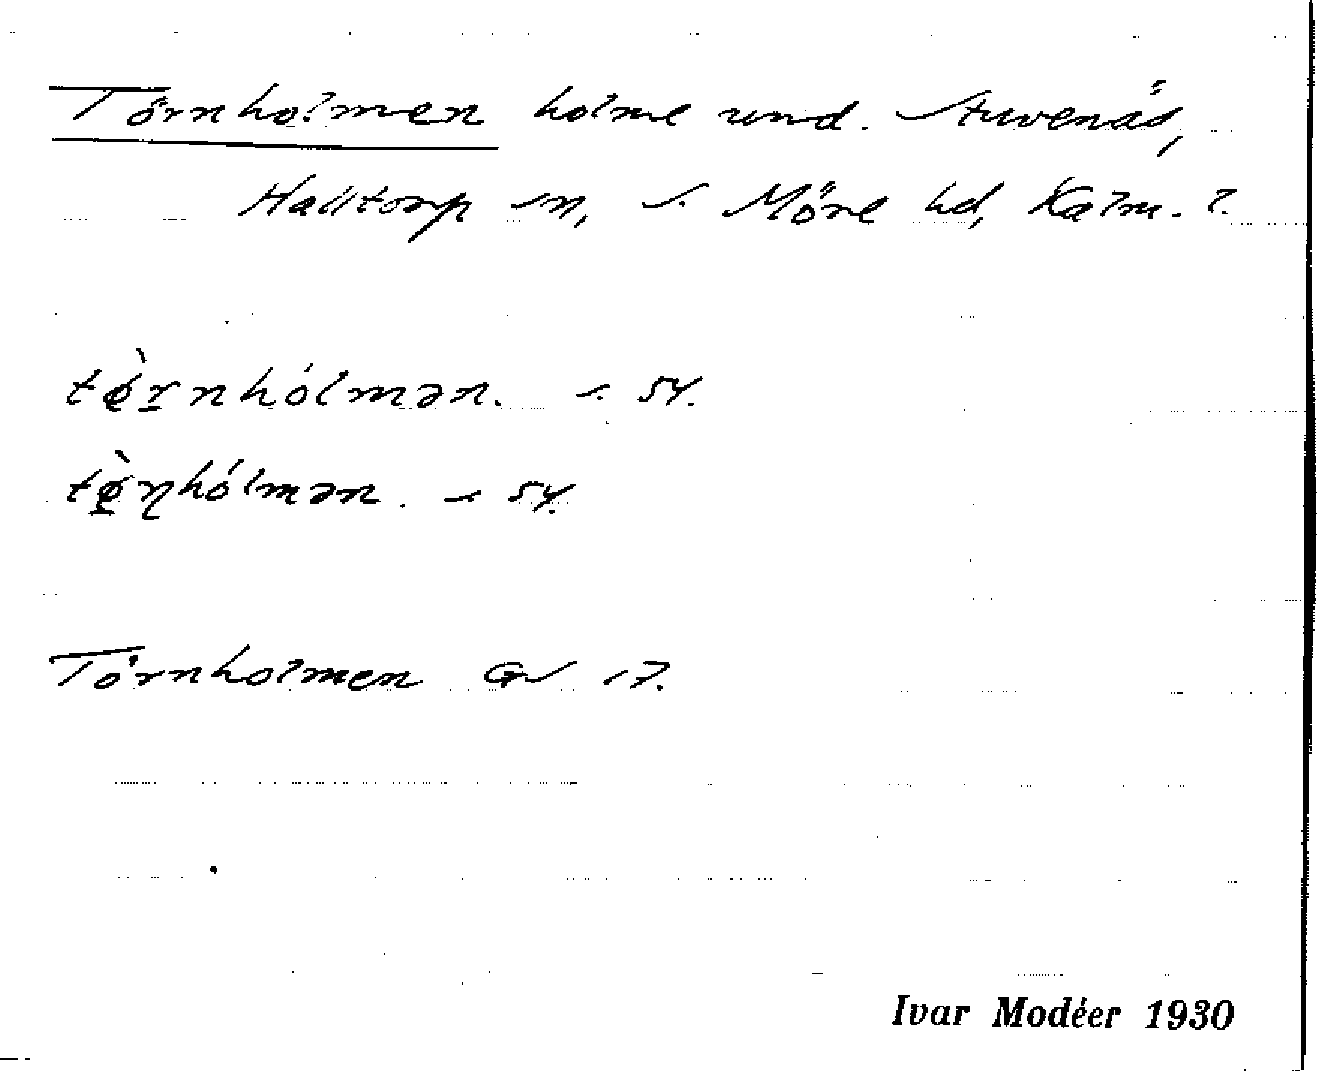 Törnholmen holme und. Stuvenäs,
Halltorp sn, S. Möre hd, Kalm. l.
tø̀rnhólmən. s 54.
tø̀ɳhólmən. s 54.
Törnholmen GS 17.
Ivar Modéer 1930